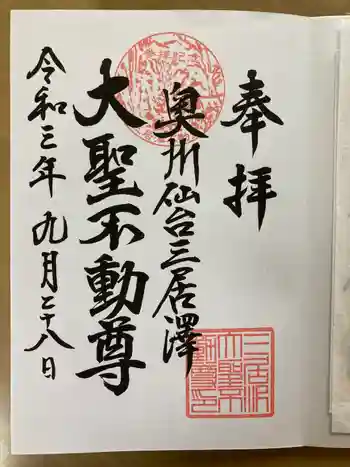 奉拝
奥州仙台三居澤
大聖不動尊
令和三年九月二十八日